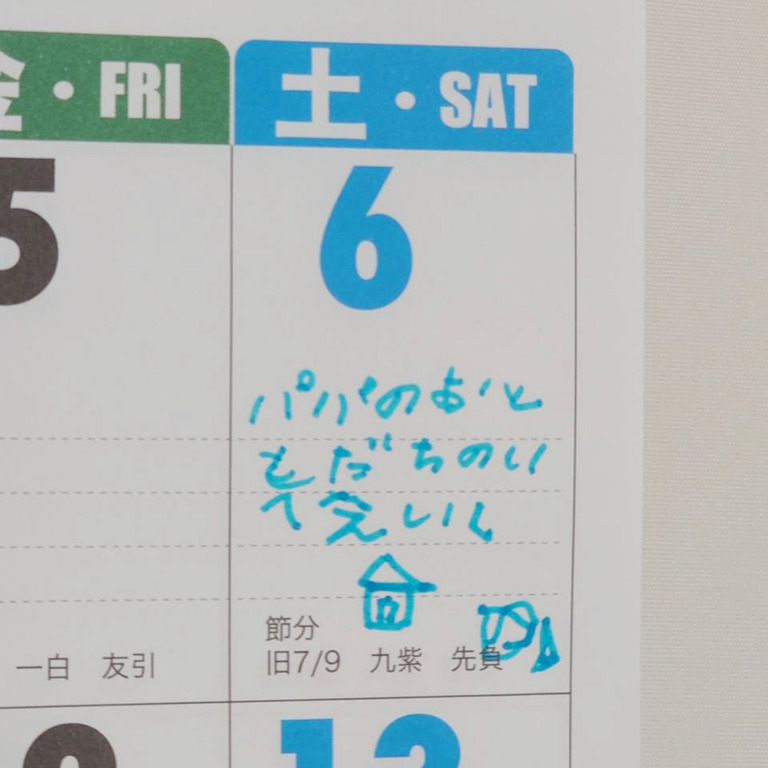 金・FRI
土・SAT
5
6
パパのおと
もだちのい
一白 友引
節分
旧7/9 九紫 先負
13